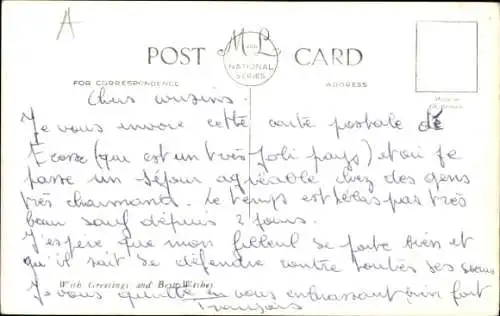 A
POST CARD
M & L
NATIONAL
SERIES
FOR CORRESPONDENCE
ADDRESS
Chers cousins.
Je vous envoie cette carte postale de
Ecosse (que est un très joli pays) et où je
passe un séjour agréable chez des gens
très charmants. Le temps est hélas pas très
beau sauf dépuis 2 jours.
J'espère que mon filleul se porte bien et
qu'il sait se défendre contre toutes ses soeurs
With Greetings and Best Wishes
Je vous quitte en vous embrassant bien fort
François